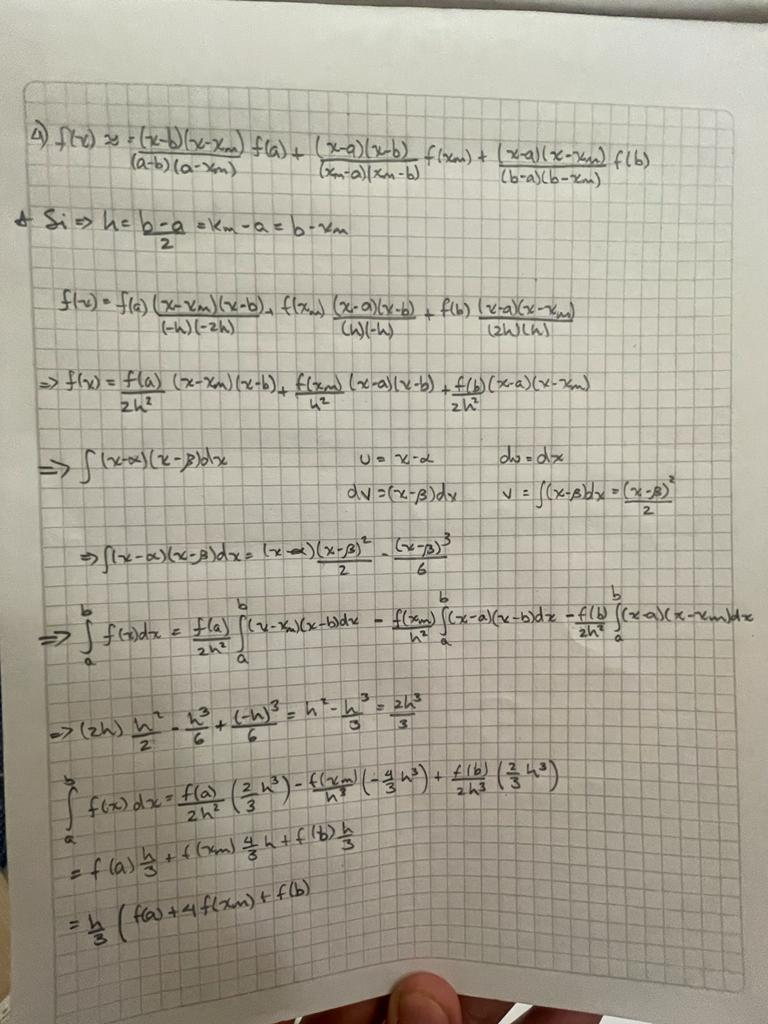 4) f(x) ≈ = (x-b)(x-xm)/(a-b)(a-xm) f(a) + (x-a)(x-b)/(xm-a)(xm-b) f(xm) + (x-a)(x-xm)/(b-a)(b-xm) f(b)
Si => h = b-a/2 = xm-a = b-xm
f(x) = f(a) (x-xm)(x-b)/(-h)(-2h) + f(xm) (x-a)(x-b)/(h)(-h) + f(b) (x-a)(x-xm)/(2h)(h)
=> f(x) = f(a)/2h² (x-xm)(x-b) + f(xm)/h² (x-a)(x-b) + f(b)/2h² (x-a)(x-xm)
=> ∫(x-α)(x-β)dx u = x-α du = dx
dv = (x-β)dx v = ∫(x-β)dx = (x-β)²/2
=> ∫(x-α)(x-β)dx = (x-α)(x-β)²/2 - (x-β)³/6
=> ∫ₐᵇ f(x)dx = f(a)/2h² ∫ₐᵇ(x-xm)(x-b)dx - f(xm)/h² ∫ₐᵇ(x-a)(x-b)dx - f(b)/2h² ∫ₐᵇ(x-a)(x-xm)dx
=> (2h) h²/2 - h³/6 + (-h)³/6 = h² - h³/3 = 2h³/3
∫ₐᵇ f(x)dx = f(a)/2h² (2/3 h³) - f(xm)/h³ (-4/3 h³) + f(b)/2h³ (2/3 h³)
= f(a) h/3 + f(xm) 4/3 h + f(b) h/3
= h/3 (f(a) + 4f(xm) + f(b)